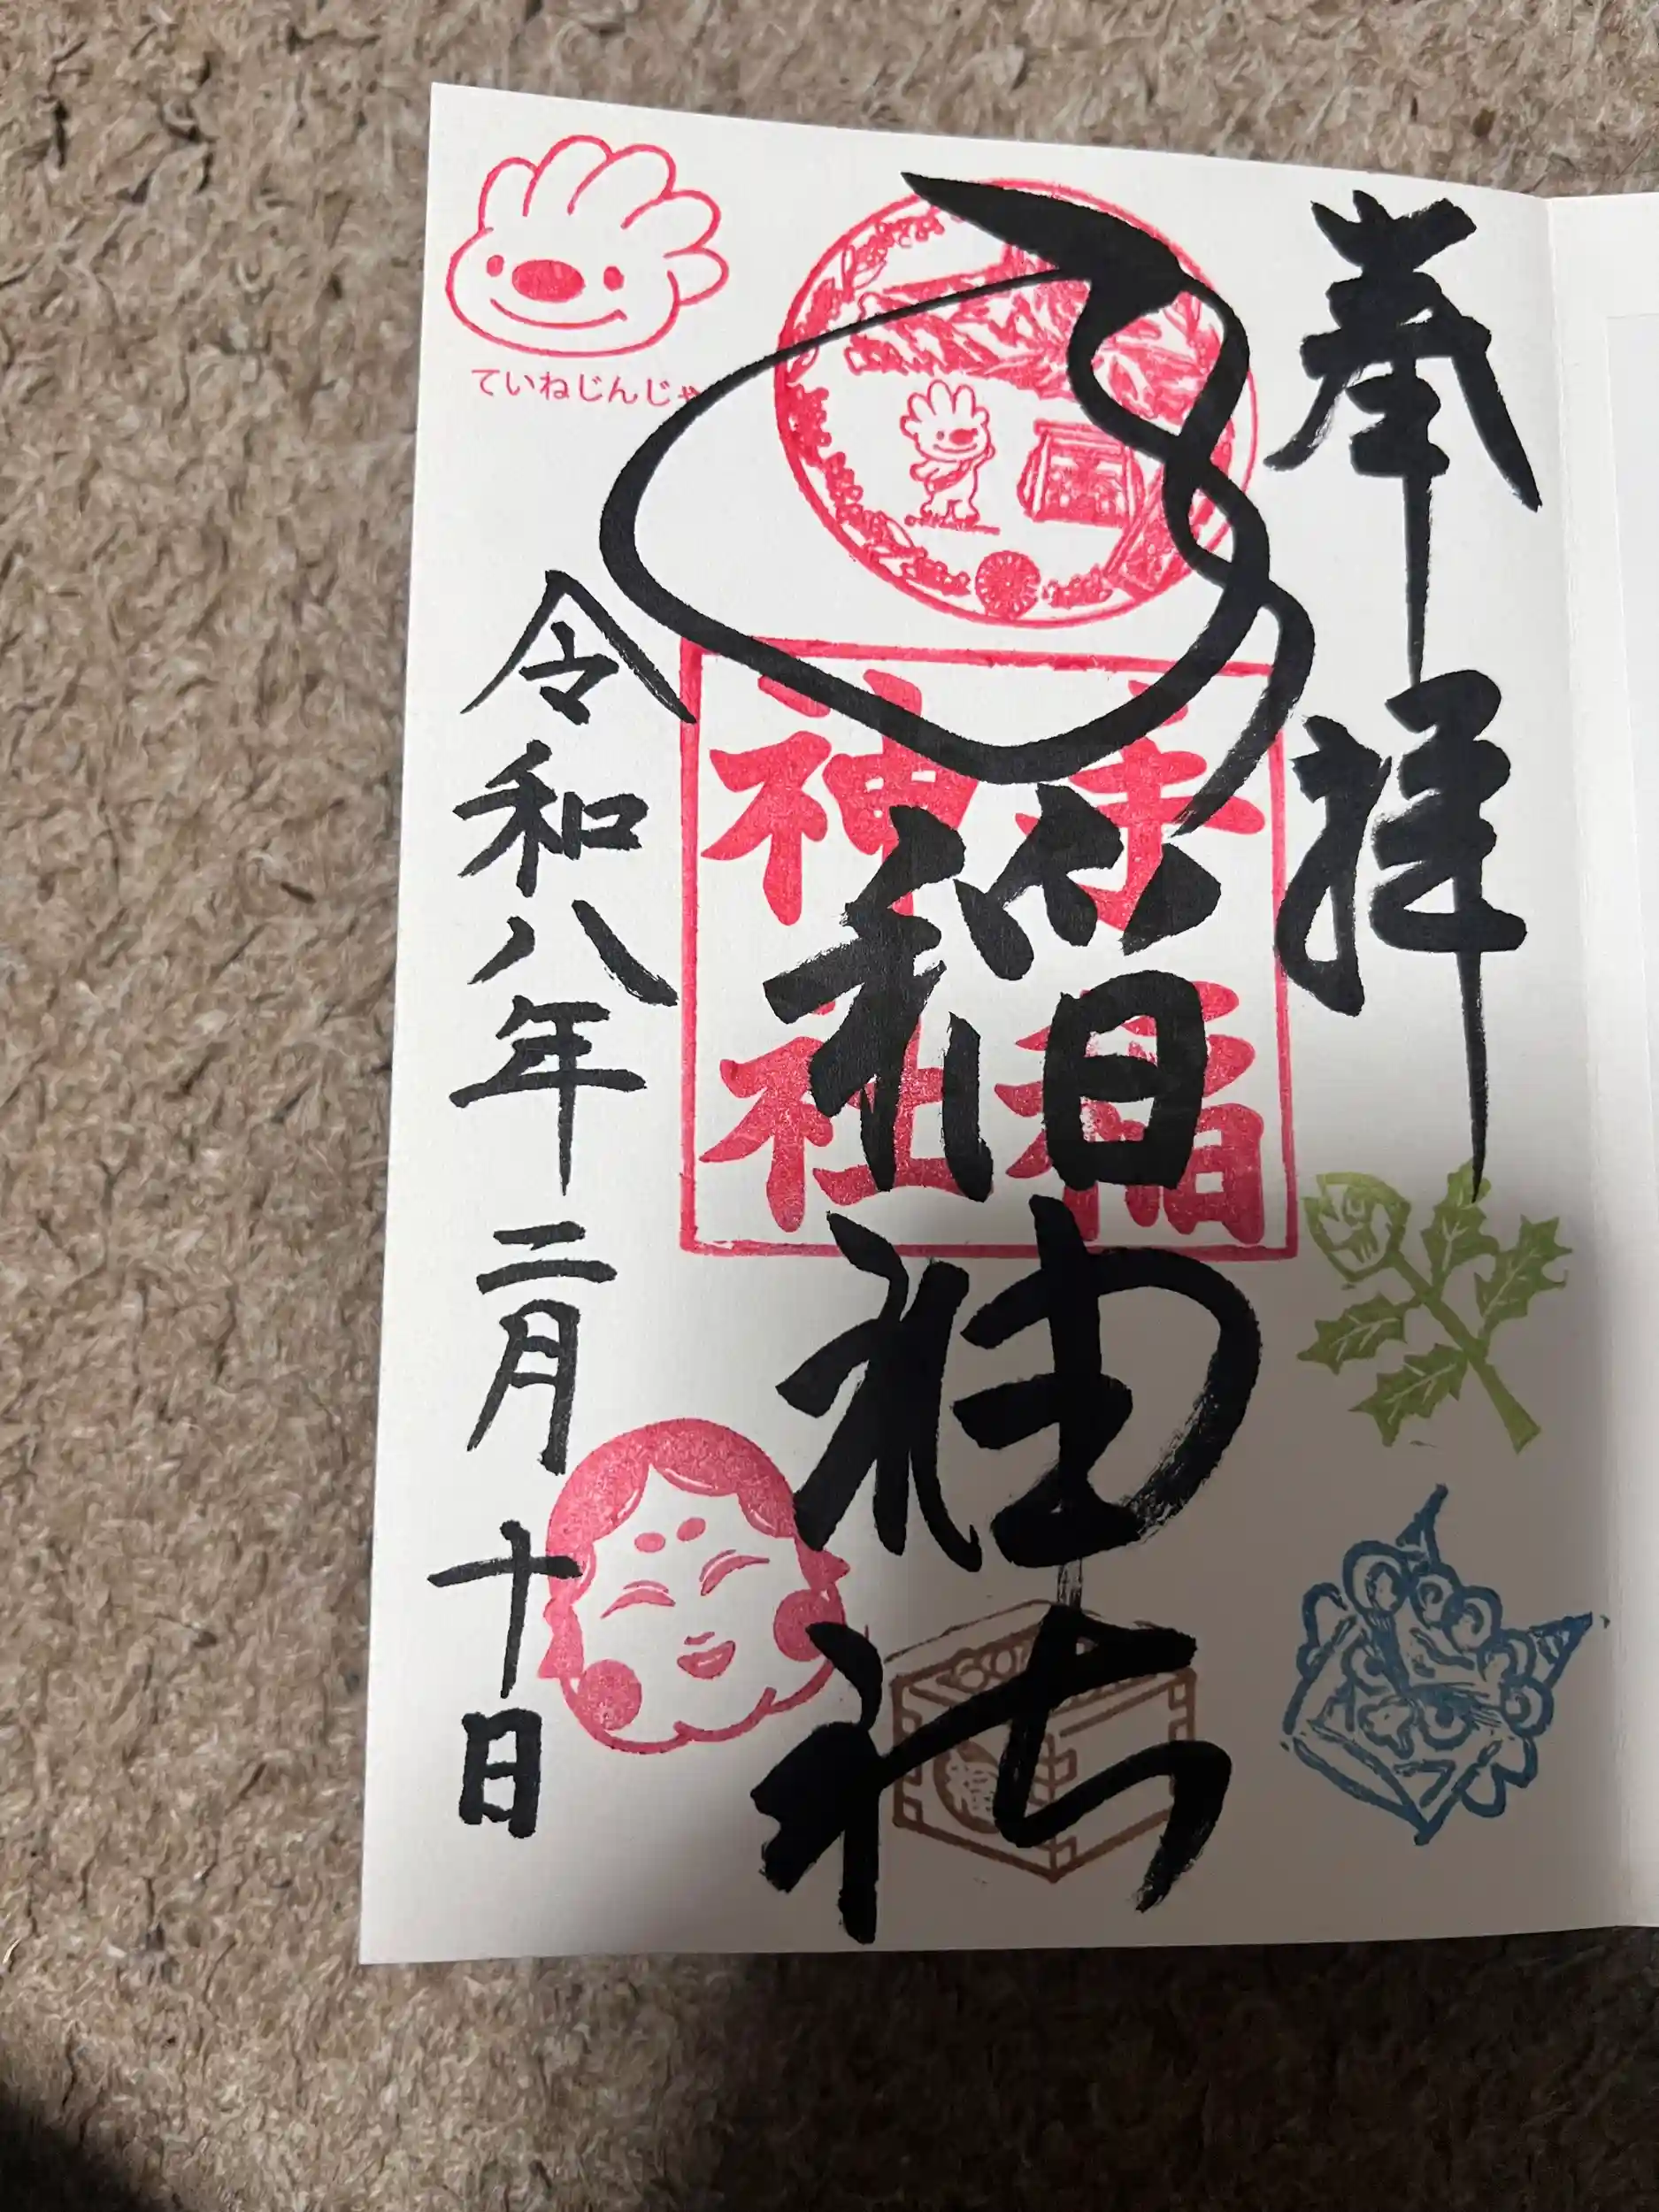 奉拝
手稲神社
手稲神社
ていねじんじゃ
令和八年二月十日
福